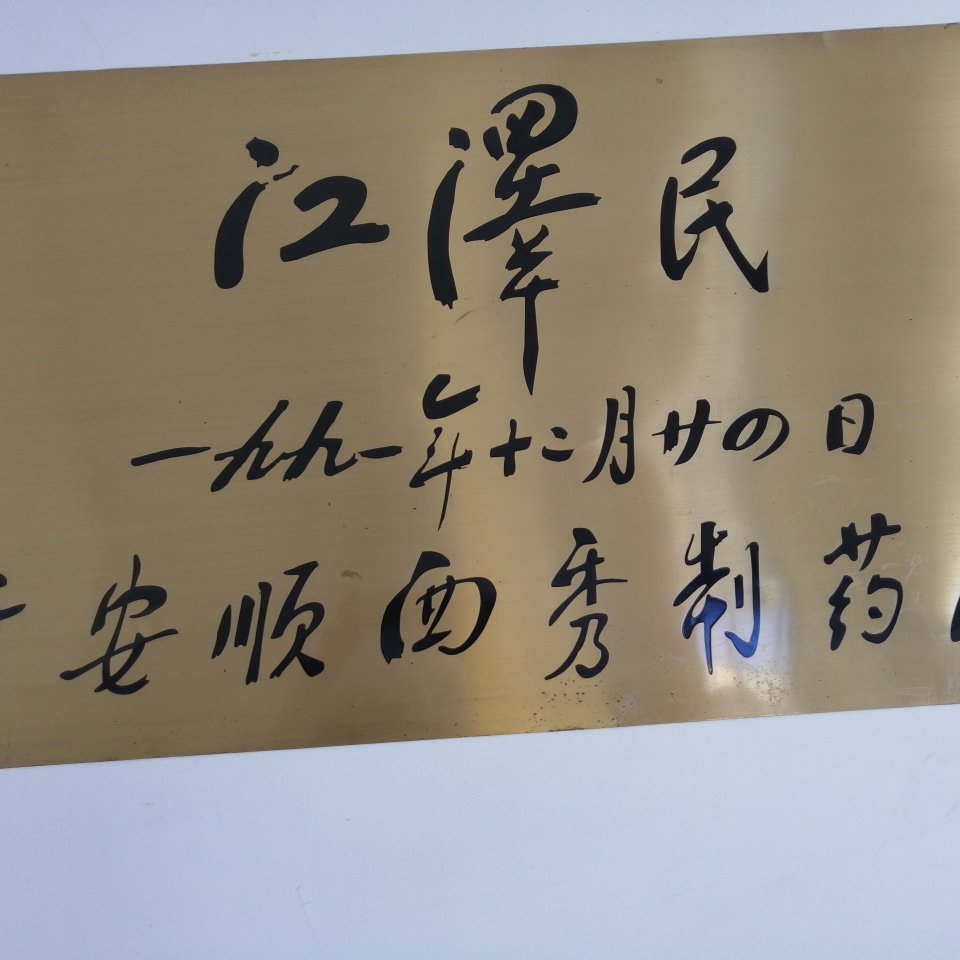 江澤民
一九九一年十二月廿四日
安顺西秀制药